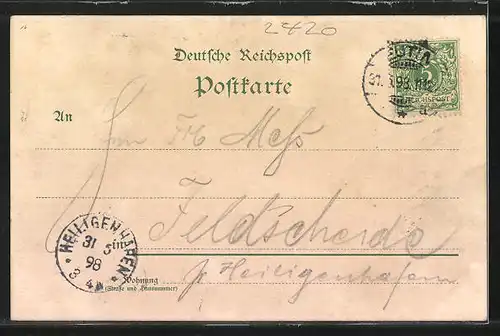 2420
Deutsche Reichspost
Postkarte
EUTIN
5
REICHSPOST
An
Frl. Mess
Feldscheide
in
p. Heiligenhafen
HEILIGENHAFEN
31 5
98
Wohnung
(Straße und Hausnummer)